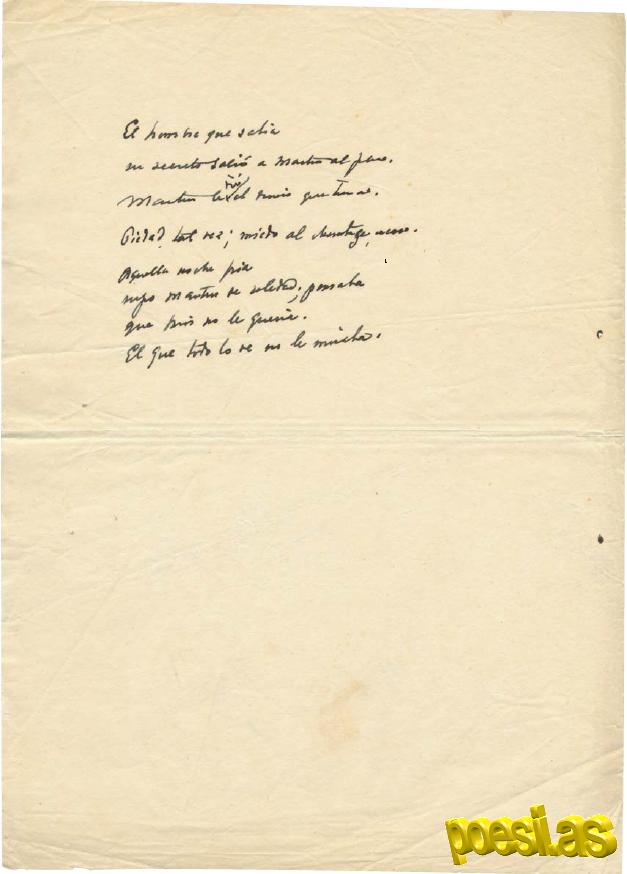 El hombre que sabía
su secreto salió a Martín al paso.
Martín le dió el dinero que tenía.
Piedad, tal vez; miedo al chantage, acaso.
Aquella noche fría
supo Martín de soledad; pensaba
que Dios no le quería.
El que todo lo ve no le miraba.
poesi.as